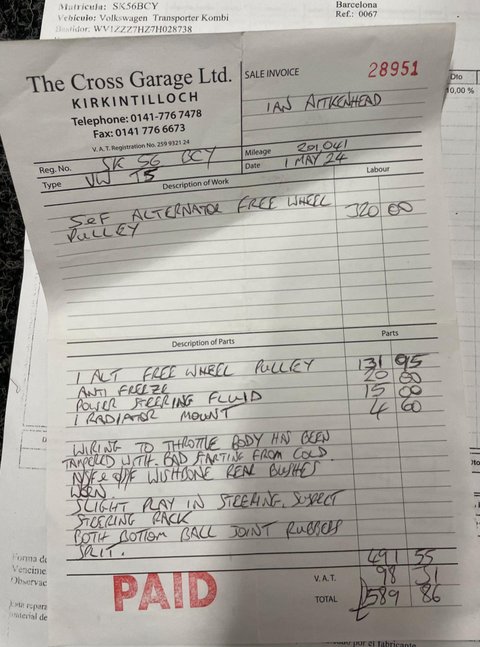 Matricula: SK56BCY
Barcelona
Vehículo: Volkswagen Transporter Kombi
Ref.: 0067
Bastidor: WV1ZZZ7HZ7H028738
Dto
10,00 %
The Cross Garage Ltd.
KIRKINTILLOCH
Telephone: 0141-776 7478
Fax: 0141 776 6673
V.A.T. Registration No. 259 9321 24
SALE INVOICE
28951
IAN AITKENHEAD
Reg. No. SK 56 BCY
Mileage 201,041
Type VW T5
Date 1 MAY 24
Description of Work
Labour
S&F ALTERNATOR FREE WHEEL 320 00
PULLEY
Description of Parts
Parts
1 ALT FREE WHEEL PULLEY 131 95
ANTI FREEZE 20 00
POWER STEERING FLUID 15 00
1 RADIATOR MOUNT 4 60
WIRING TO THROTTLE BODY HAS BEEN
TAMPERED WITH. BAD STARTING FROM COLD.
N/F & O/F WISHBONE REAR BUSHES
WORN.
SLIGHT PLAY IN STEERING. SUSPECT
STEERING RACK
BOTH BOTTOM BALL JOINT RUBBERS
SPLIT.
491 55
V.A.T. 98 31
TOTAL £589 86
PAID
Forma de
Vencime
Observac
Este repara
material de
por el fabricante